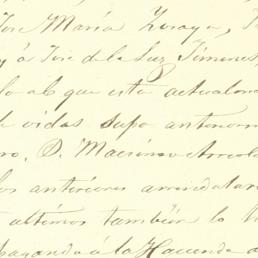 José María Zozaya,
y á Jose de la Luz Jimenes,
lo al que esta actualm
vidas supo anteriorm
ro, D. Macsimo Arreola
los anteriores arrendatar
ultimos tambien lo
pagando á la Hacienda